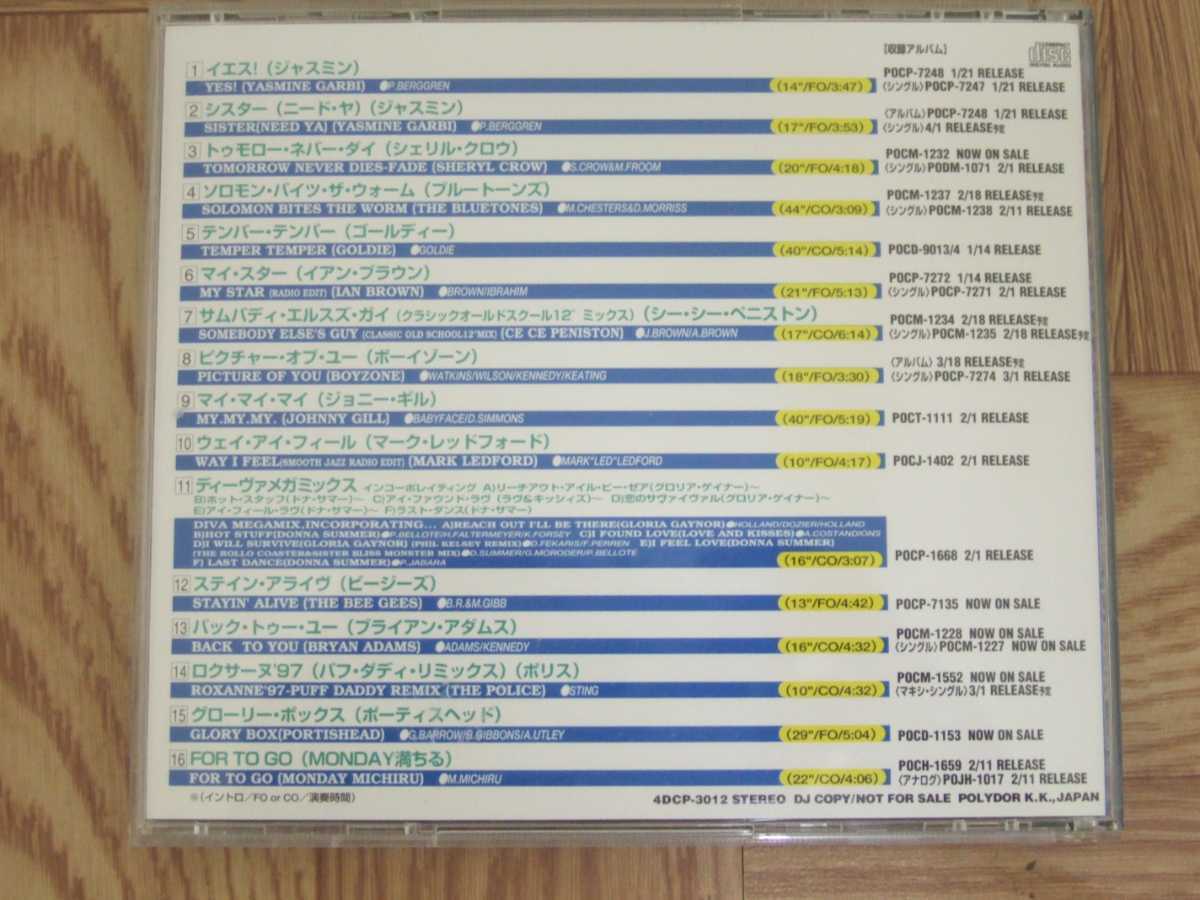 【収録アルバム】
disc
1 イエス!（ジャスミン）
YES! (YASMINE GARBI) ●P.BERGGREN (14"/FO/3:47)
POCP-7248 1/21 RELEASE
〈シングル〉POCP-7247 1/21 RELEASE
2 シスター（ニード・ヤ）（ジャスミン）
SISTER(NEED YA) (YASMINE GARBI) ●P.BERGGREN (17"/FO/3:53)
〈アルバム〉POCP-7248 1/21 RELEASE
〈シングル〉4/1 RELEASE予定
3 トゥモロー・ネバー・ダイ（シェリル・クロウ）
TOMORROW NEVER DIES-FADE (SHERYL CROW) ●S.CROW&M.FROOM (20"/FO/4:18)
POCM-1232 NOW ON SALE
〈シングル〉PODM-1071 2/1 RELEASE
4 ソロモン・バイツ・ザ・ウォーム（ブルートーンズ）
SOLOMON BITES THE WORM (THE BLUETONES) ●M.CHESTERS&D.MORRISS (44"/CO/3:09)
POCM-1237 2/18 RELEASE予定
〈シングル〉POCM-1238 2/11 RELEASE
5 テンパー・テンパー（ゴールディー）
TEMPER TEMPER (GOLDIE) ●GOLDIE (40"/CO/5:14)
POCD-9013/4 1/14 RELEASE
6 マイ・スター（イアン・ブラウン）
MY STAR (RADIO EDIT) (IAN BROWN) ●BROWN/IBRAHIM (21"/FO/5:13)
POCP-7272 1/14 RELEASE
〈シングル〉POCP-7271 2/1 RELEASE
7 サムバディ・エルスズ・ガイ（クラシックオールドスクール12″ミックス）（シー・シー・ペニストン）
SOMEBODY ELSE'S GUY (CLASSIC OLD SCHOOL12"MIX) (CE CE PENISTON) ●J.BROWN/A.BROWN (17"/CO/6:14)
POCM-1234 2/18 RELEASE予定
〈シングル〉POCM-1235 2/18 RELEASE予定
8 ピクチャー・オブ・ユー（ボーイゾーン）
PICTURE OF YOU (BOYZONE) ●WATKINS/WILSON/KENNEDY/KEATING (18"/FO/3:30)
〈アルバム〉3/18 RELEASE予定
〈シングル〉POCP-7274 3/1 RELEASE
9 マイ・マイ・マイ（ジョニー・ギル）
MY.MY.MY. (JOHNNY GILL) ●BABYFACE/D.SIMMONS (40"/FO/5:19)
POCT-1111 2/1 RELEASE
10 ウェイ・アイ・フィール（マーク・レッドフォード）
WAY I FEEL(SMOOTH JAZZ RADIO EDIT) (MARK LEDFORD) ●MARK"LED"LEDFORD (10"/FO/4:17)
POCJ-1402 2/1 RELEASE
11 ディーヴァメガミックス インコーポレイティング A)リーチアウト・アイル・ビー・ゼア(グロリア・ゲイナー)～
B)ホット・スタッフ(ドナ・サマー)～ C)アイ・ファウンド・ラヴ（ラヴ&キッシィズ)～ D)恋のサヴァイヴァル(グロリア・ゲイナー)～
E)アイ・フィール・ラヴ(ドナ・サマー)～ F)ラスト・ダンス(ドナ・サマー)
DIVA MEGAMIX,INCORPORATING... A)REACH OUT I'LL BE THERE(GLORIA GAYNOR)●HOLLAND/DOZIER/HOLLAND
B)HOT STUFF(DONNA SUMMER)●P.BELLOTE/H.FALTERMEYER/K.FORSEY C)I FOUND LOVE(LOVE AND KISSES)●A.COSTANDIONS
D)I WILL SURVIVE(GLORIA GAYNOR) (PHIL KELSEY REMIX)●D.FEKARIS/F.PERREN E)I FEEL LOVE(DONNA SUMMER)
(THE ROLLO COASTER&SISTER BLISS MONSTER MIX)●D.SUMMER/G.MORODER/P.BELLOTE
F) LAST DANCE(DONNA SUMMER)●P.JABARA (16"/CO/3:07)
POCP-1668 2/1 RELEASE
12 ステイン・アライヴ（ビージーズ）
STAYIN' ALIVE (THE BEE GEES) ●B.R.&M.GIBB (13"/FO/4:42)
POCP-7135 NOW ON SALE
13 バック・トゥー・ユー（ブライアン・アダムス）
BACK TO YOU (BRYAN ADAMS) ●ADAMS/KENNEDY (16"/CO/4:32)
POCM-1228 NOW ON SALE
〈シングル〉POCM-1227 NOW ON SALE
14 ロクサーヌ'97（パフ・ダディ・リミックス）（ポリス）
ROXANNE'97-PUFF DADDY REMIX (THE POLICE) ●STING (10"/CO/4:32)
POCM-1552 NOW ON SALE
〈マキシ・シングル〉3/1 RELEASE予定
15 グローリー・ボックス（ポーティスヘッド）
GLORY BOX(PORTISHEAD) ●G.BARROW/B.GIBBONS/A.UTLEY (29"/FO/5:04)
POCD-1153 NOW ON SALE
16 FOR TO GO（MONDAY満ちる）
FOR TO GO (MONDAY MICHIRU) ●M.MICHIRU (22"/CO/4:06)
POCH-1659 2/11 RELEASE
〈アナログ〉POJH-1017 2/11 RELEASE
※（イントロ／FO or CO／演奏時間）
4DCP-3012 STEREO DJ COPY/NOT FOR SALE POLYDOR K.K.,JAPAN